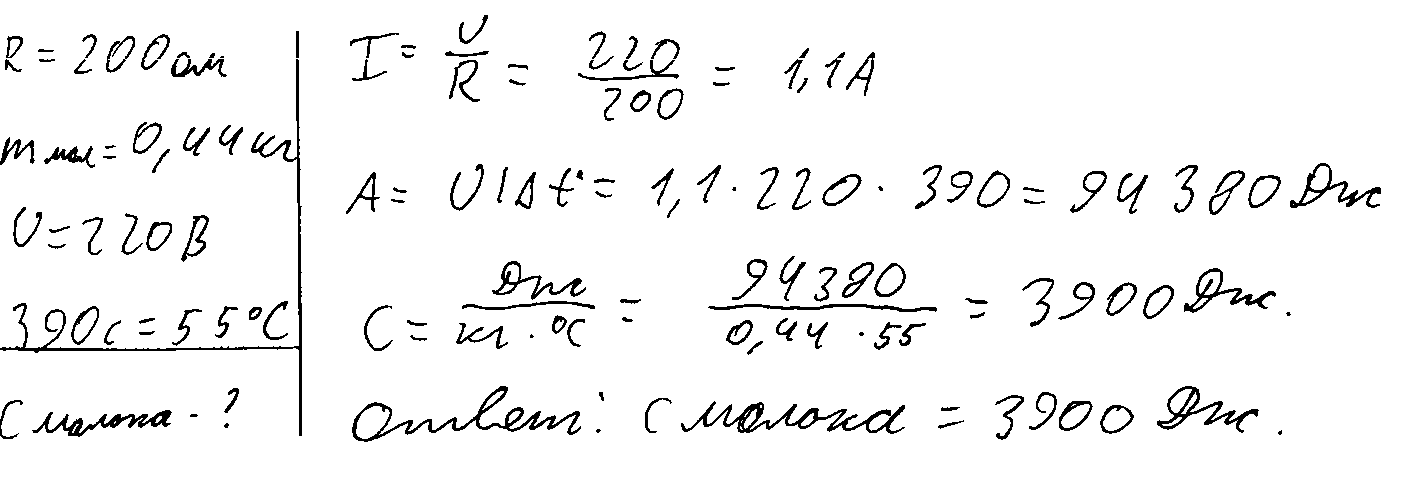 R = 200 ом
m мол = 0,44 кг
U = 220 В
390 с = 55°C
C молока - ?
I = U/R = 220/200 = 1,1 A
A = UIΔt = 1,1 · 220 · 390 = 94 380 Дж
C = Дж/кг · °C = 94380/0,44 · 55 = 3900 Дж.
Ответ: C молока = 3900 Дж.